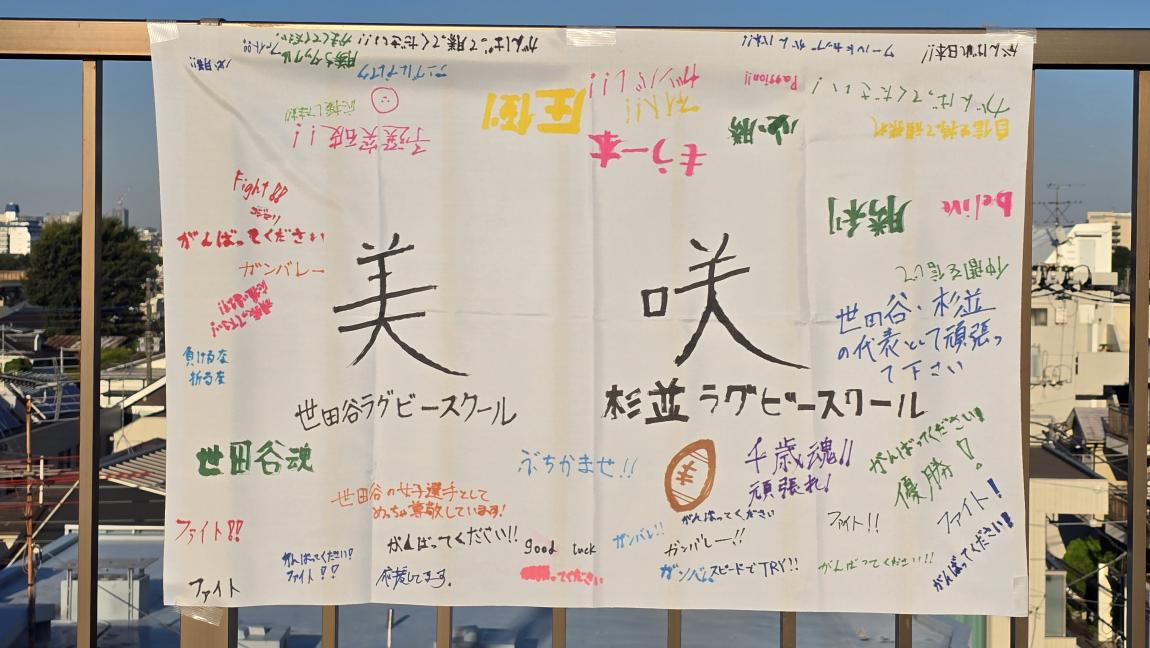 がんばって勝ってください!!!
ファイト!!
ワールドカップ
がんばれ日本!!
アンブルブレイク
圧倒
ガンバレ!!
ファイト!!
Passion!!
がんばってください!
応援してます!!
必勝
自信を持って頑張れ
もう一本
Fight!!
勝利
belive
がんばってください
ガンバレー
仲間を信じて
美 咲
世田谷・杉並
の代表として頑張っ
て下さい
負けるな
折るな
世田谷ラグビースクール
杉並ラグビースクール
世田谷魂
ぶちかませ!!
千歳魂!!
頑張れ!
がんばってください!
優勝!
世田谷の女子選手として
めっちゃ尊敬しています!
ファイト!!
がんばってください!!
good luck
ガンバレ!!
がんばってください
ガンバレー!!
ファイト!!
ファイト!
がんばってください!
ファイト!!
応援してます。
ってください
ガンバ
スピードでTRY!!
がんばってください!!
がんばってください!
ファイト